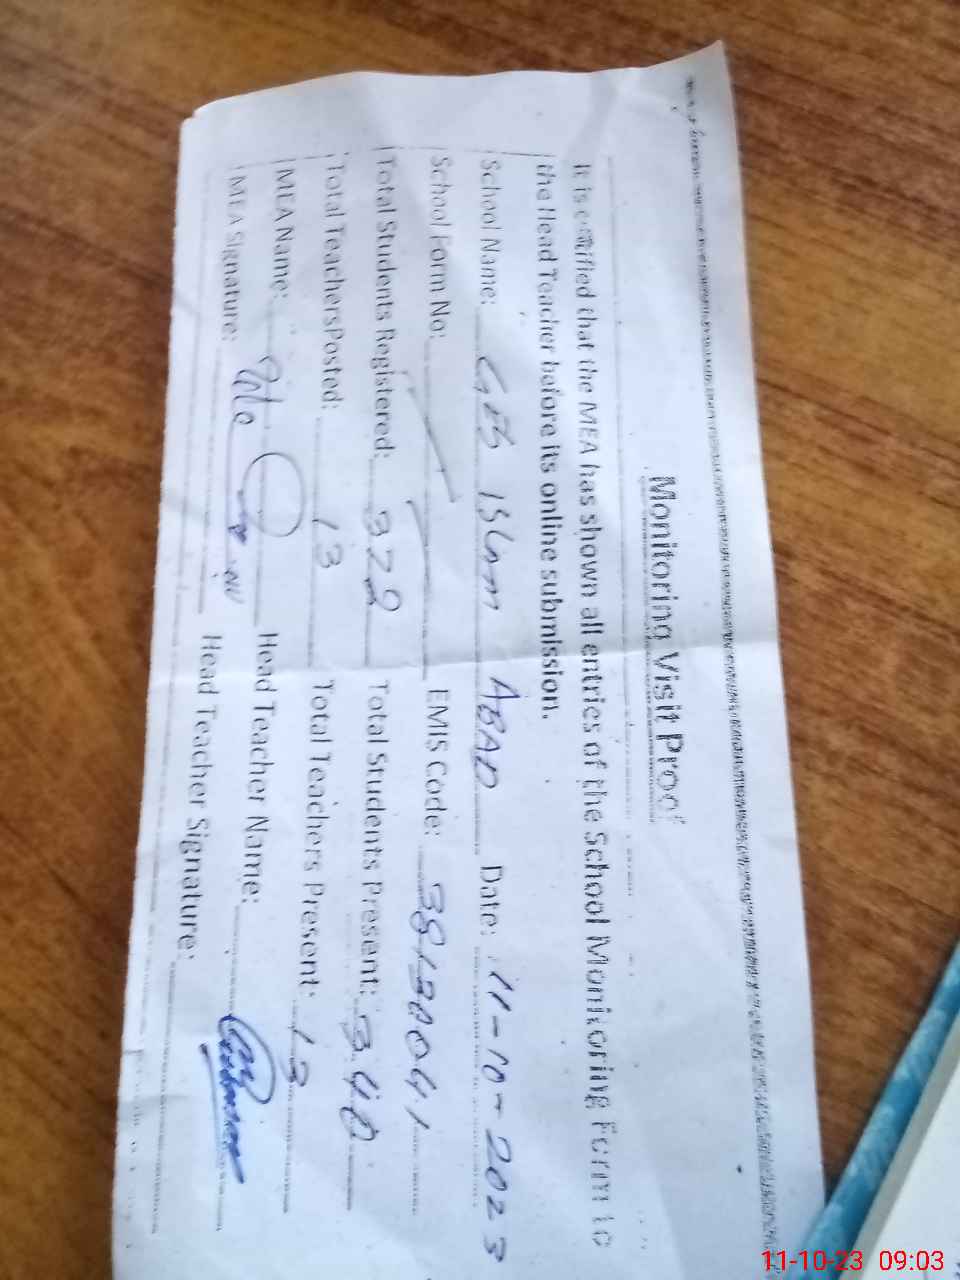 Monitoring Visit Proof
It is certified that the MEA has shown all entries of the School Monitoring Form to
the Head Teacher before its online submission.
School Name: GES ISLAM ABAD Date: 11-10-2023
School Form No: EMIS Code:
Total Students Registered: 379 Total Students Present: 340
Total Teachers Posted: 13 Total Teachers Present: 13
MEA Name: Head Teacher Name:
MEA Signature: Head Teacher Signature:
11-10-23 09:03